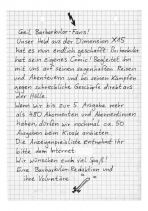 Geil Barbarbilor-Fans!
Unser Held aus der Dimension X45
hat es nun endlich geschafft. Barbarbilor
hat sein eigenes Comic! Begleitet ihn
mit uns auf seinen sagenhaften Reisen
und Abenteuern und bei seinen Kämpfen
gegen schreckliche Geschöpfe direkt aus
der Hölle.
Wenn wir bis zur 5. Ausgabe mehr
als 480 Abonnenten und Abonnentinnen
haben, dürfen wir nochmal ca. 50
Ausgaben beim Kiosk anbieten.
Die Anzeigenpreisliste entnehmt ihr
bitte dem Internet.
Wir wünschen euch viel Spaß!
Eine Barbarbilor-Redaktion und
ihre Volontäre